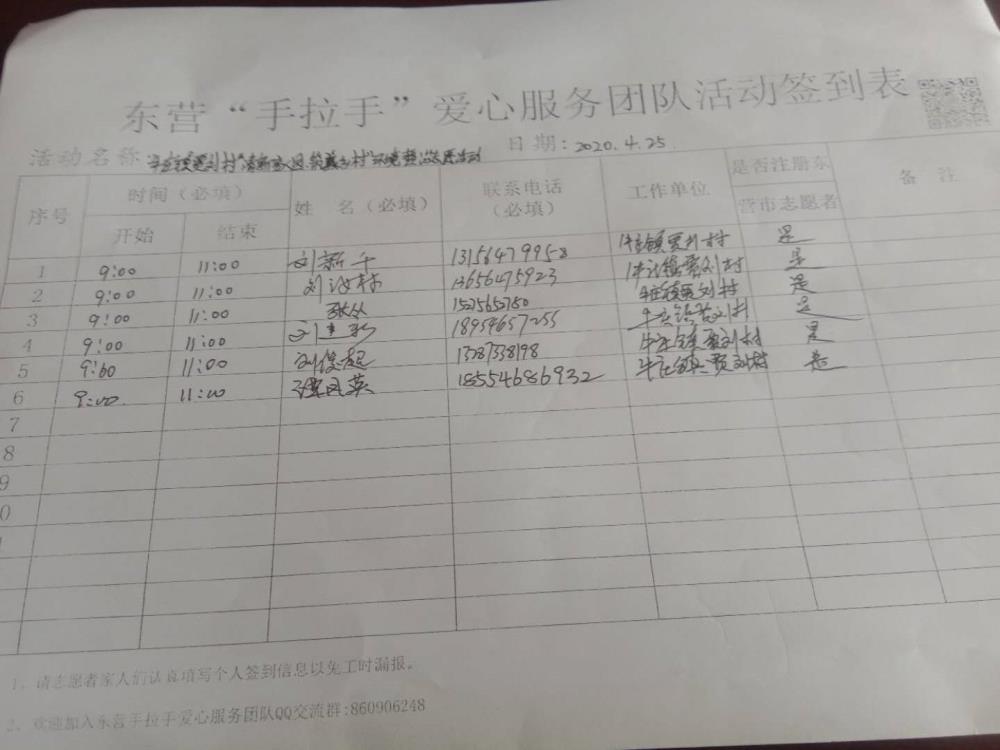 东营“手拉手”爱心服务团队活动签到表
活动名称 牛庄镇贾刘村“清新 环境整治志愿活动 日期：2020.4.25
序号 时间（必填） 姓 名（必填） 联系电话（必填） 工作单位 是否注册东营市志愿者 备 注
开始 结束
1 9:00 11:00 刘新千 13156479958 牛庄镇贾刘村 是
2 9:00 11:00 刘汝林 13656475923 牛庄镇贾刘村 是
3 9:00 11:00 张从 牛庄镇贾刘村 是
4 9:00 11:00 刘 18954657255 牛庄镇贾刘村 是
5 9:00 11:00 刘俊起 13287338198 牛庄镇贾刘村 是
6 9:00 11:00 凤英 18554686932 牛庄镇贾刘村 是
7
8
9
0
1、请志愿者家人们认真填写个人签到信息以免工时漏报。
2、欢迎加入东营手拉手爱心服务团队QQ交流群:860906248